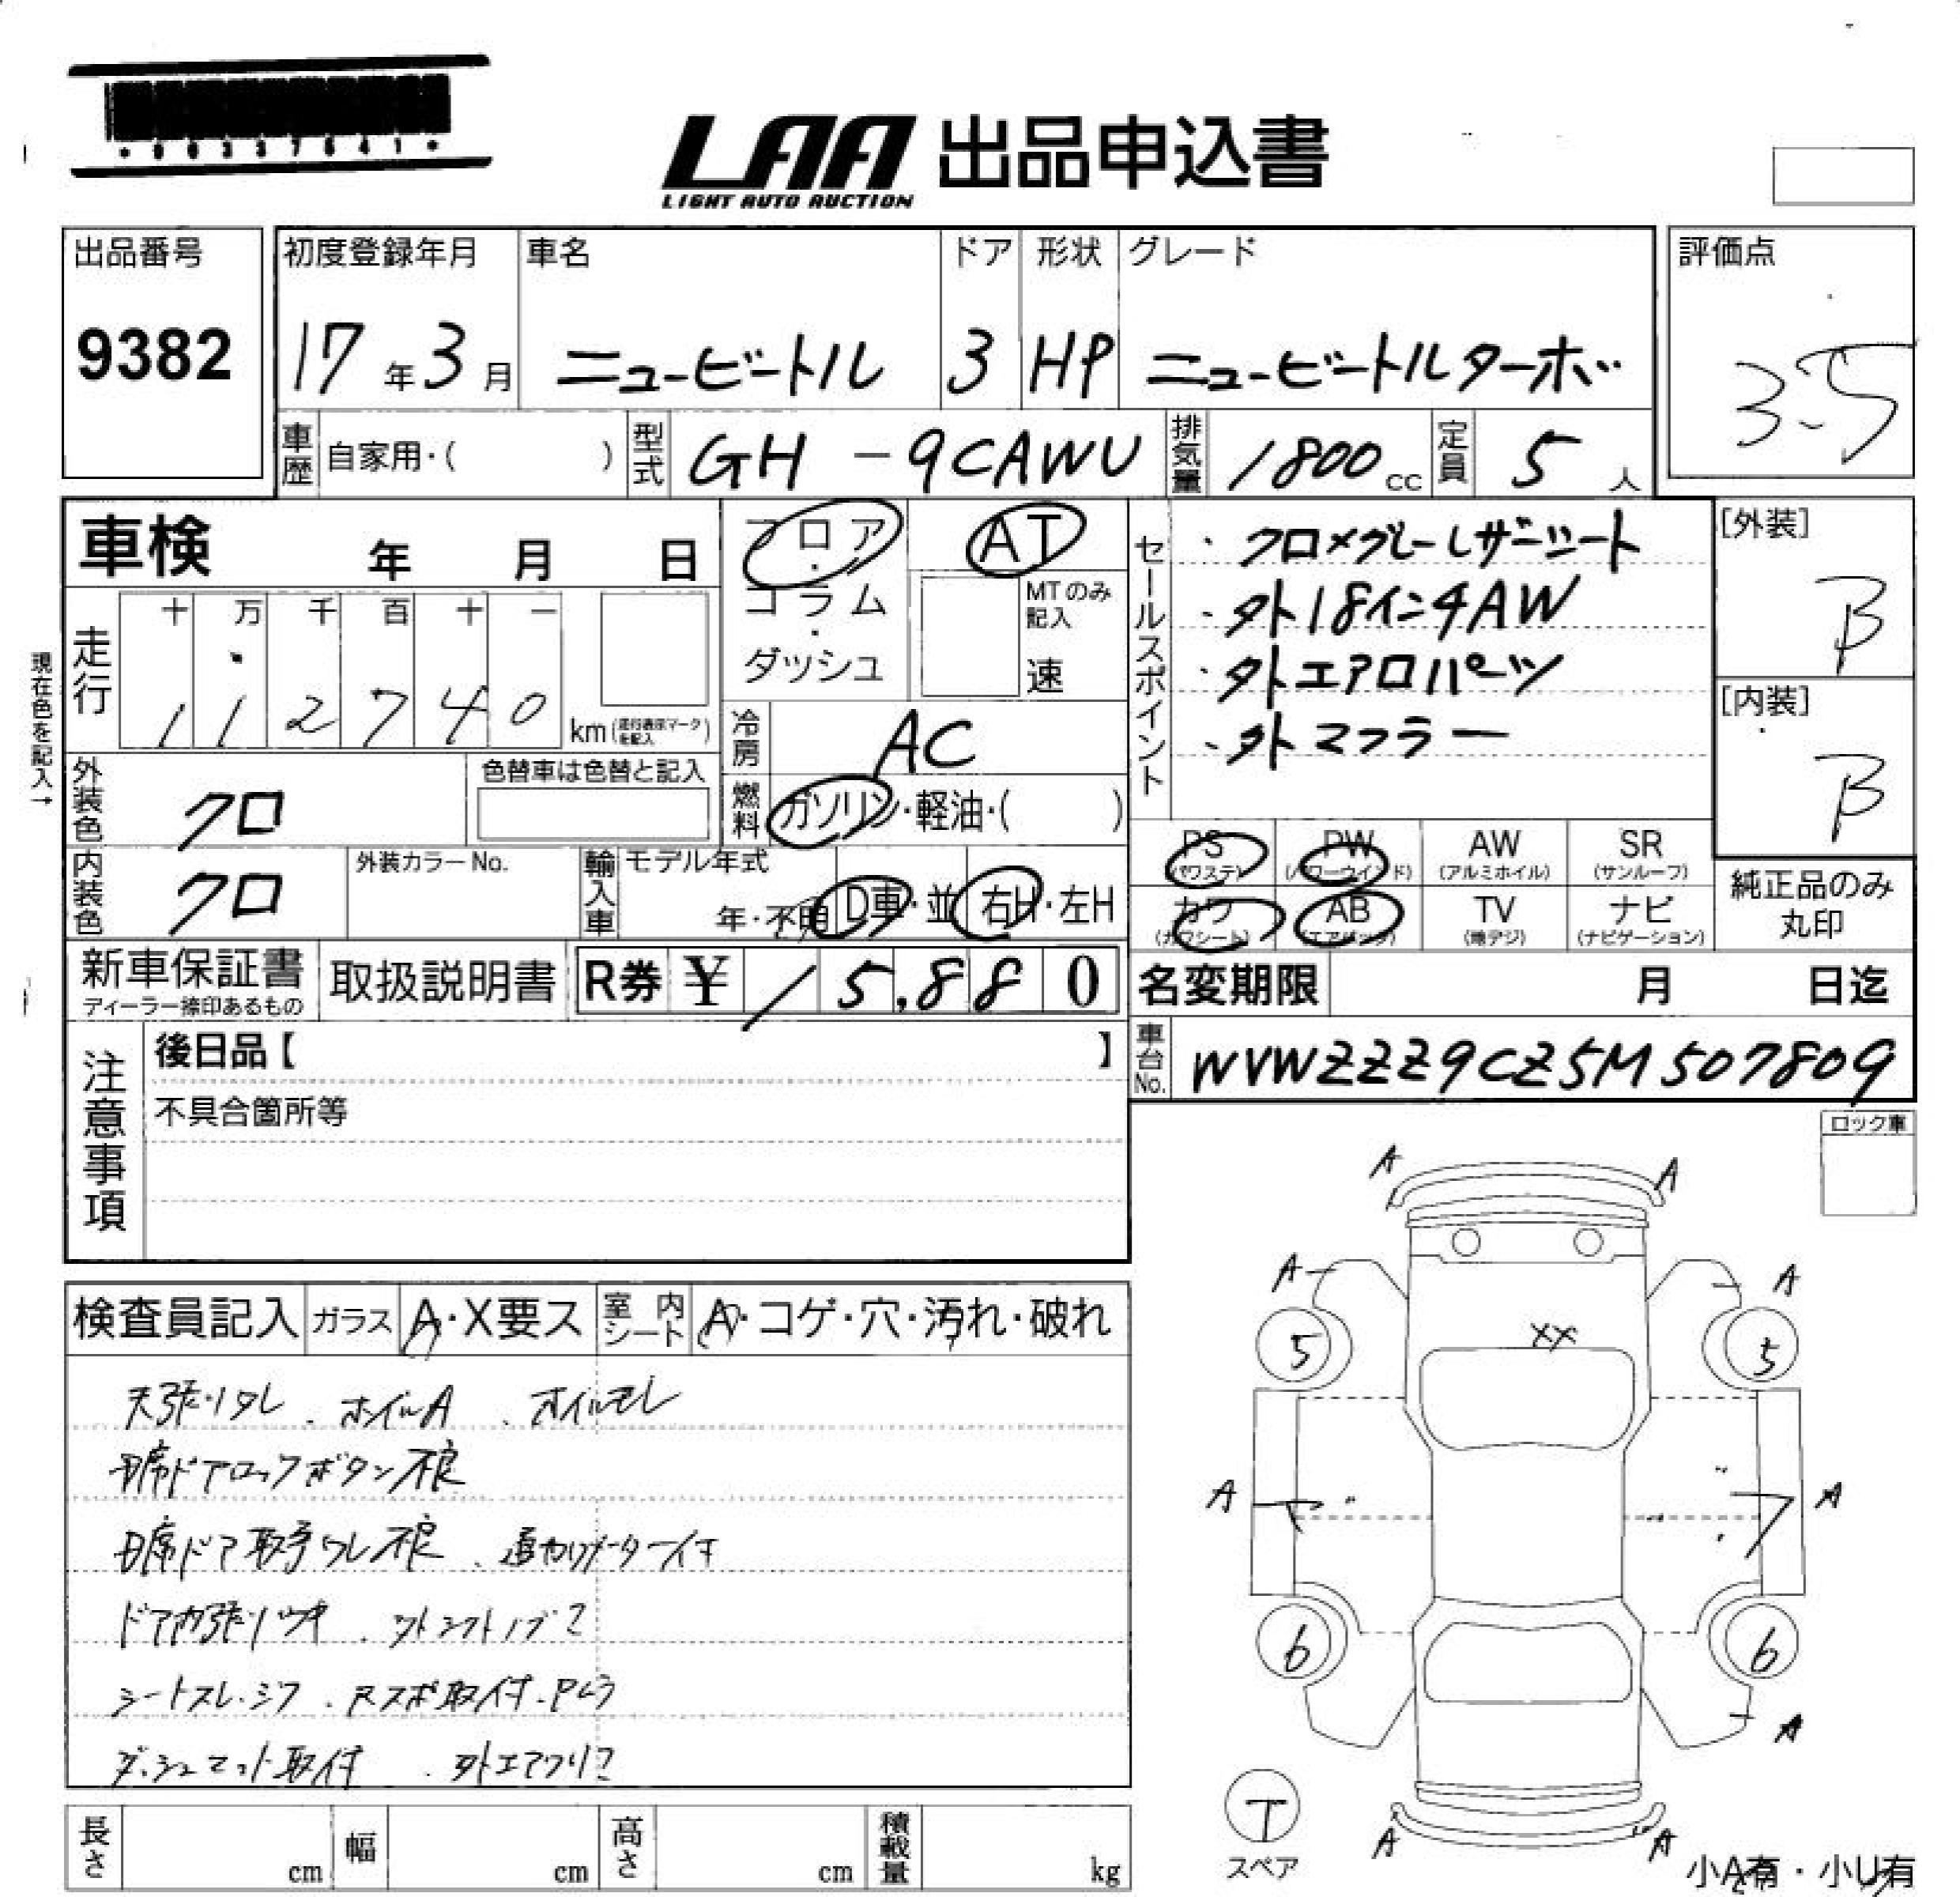 LAA 出品申込書
LIGHT AUTO AUCTION
出品番号
9382
初度登録年月
17年3月
車名
ニュービートル
ドア
3
形状
HP
グレード
ニュービートルターボ
評価点
3.5
車歴 自家用・( )
型式 GH-9CAWU
排気量 1800cc
定員 5人
車検 年 月 日
フロア・コラム・ダッシュ
AT
MTのみ記入
速
走行
十 万 千 百 十 一
112740
km(走行表示マークを記入)
現在色を記入→
冷房 AC
燃料 ガソリン・軽油・( )
外装色 クロ
色替車は色替と記入
内装色 クロ
外装カラーNo.
輸入車 モデル年式
年・不明 D車・並 右H・左H
セールスポイント
・クロ×グレーレザーシート
・外18インチAW
・外エアロパーツ
・外マフラー
[外装]
B
[内装]
B
PS (パワステ)
PW (パワーウインド)
AW (アルミホイル)
SR (サンルーフ)
カワ (カワシート)
AB (エアバック)
TV (地デジ)
ナビ (ナビゲーション)
純正品のみ丸印
新車保証書
ディーラー捺印あるもの
取扱説明書
R券 ¥15,880
名変期限 月 日迄
車台No. WVWZZZ9CZ5M507809
注意事項
後日品【 】
不具合箇所等
ロック車
検査員記入
ガラス A・X要ス
室内シート A・コゲ・穴・汚れ・破れ
天張りタレ、ホイルA、オイルモレ
D席ドアロックボタン不良
D席ドア取手ワレ不良、追加メーター付
ドア内張りツキ、外シフトノブ
シートスレ・シワ、Rスポ取付
ダッシュマット取付、外エアクリ
A A
A A
5 XX 5
A A
6 6
A
A A
T
スペア
小A有・小U有
長さ cm
幅 cm
高さ cm
積載量 kg